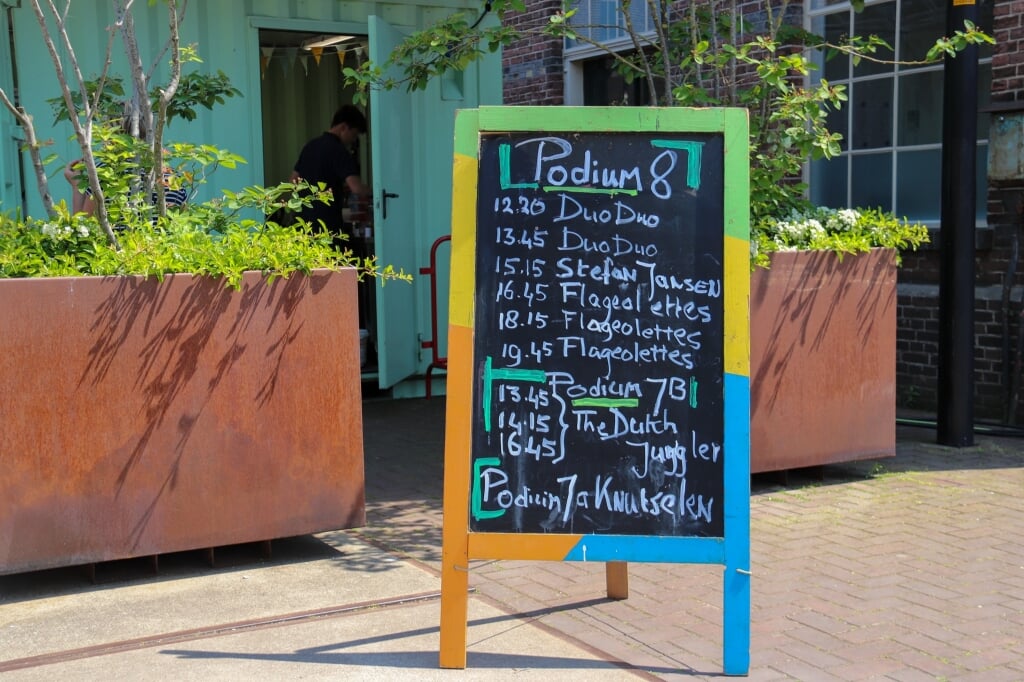 Podium 8
12.20 DuoDuo
13.45 DuoDuo
15.15 Stefan Jansen
16.45 Flageolettes
18.15 Flageolettes
19.45 Flageolettes
Podium 7B
13.45
14.15 The Dutch
16.45 Juggler
Podium 7a Knutselen